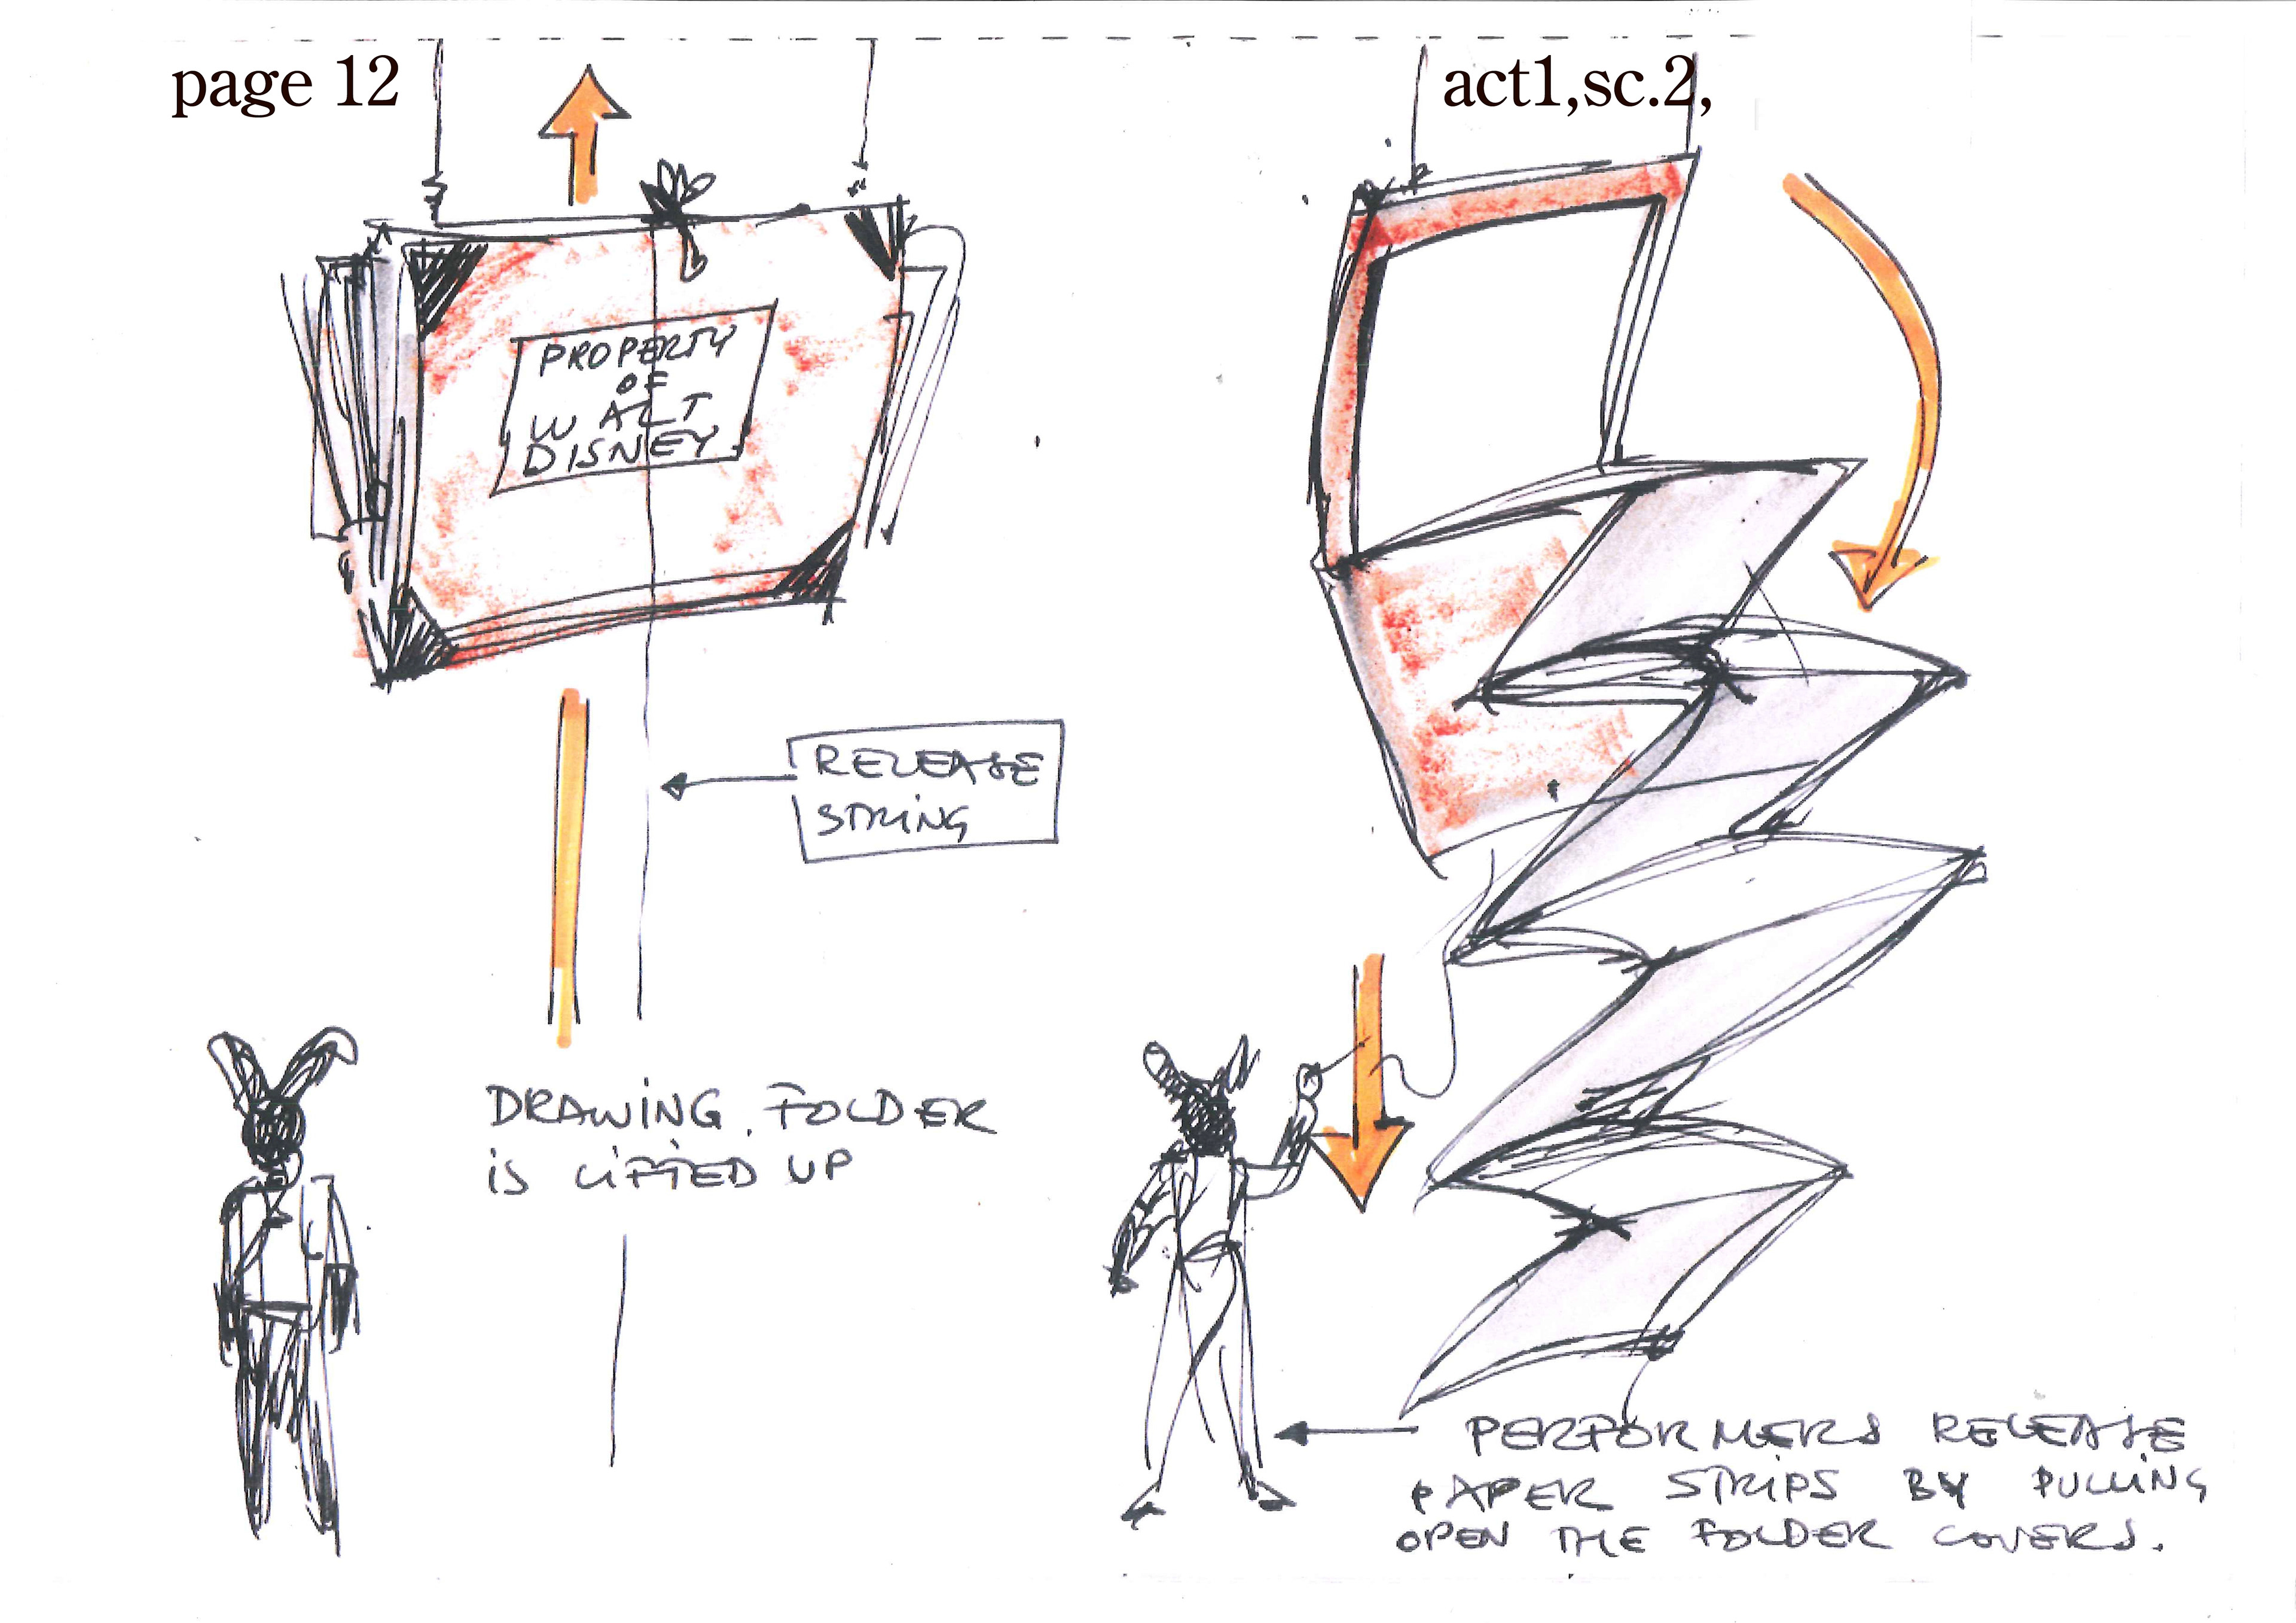 page 12
act1,sc.2,
PROPERTY
OF
WALT
DISNEY
RELEASE
STRING
DRAWING FOLDER
is LIFTED UP
PERFORMERS RELEASE
PAPER STRIPS BY PULLING
OPEN THE FOLDER COVERS.